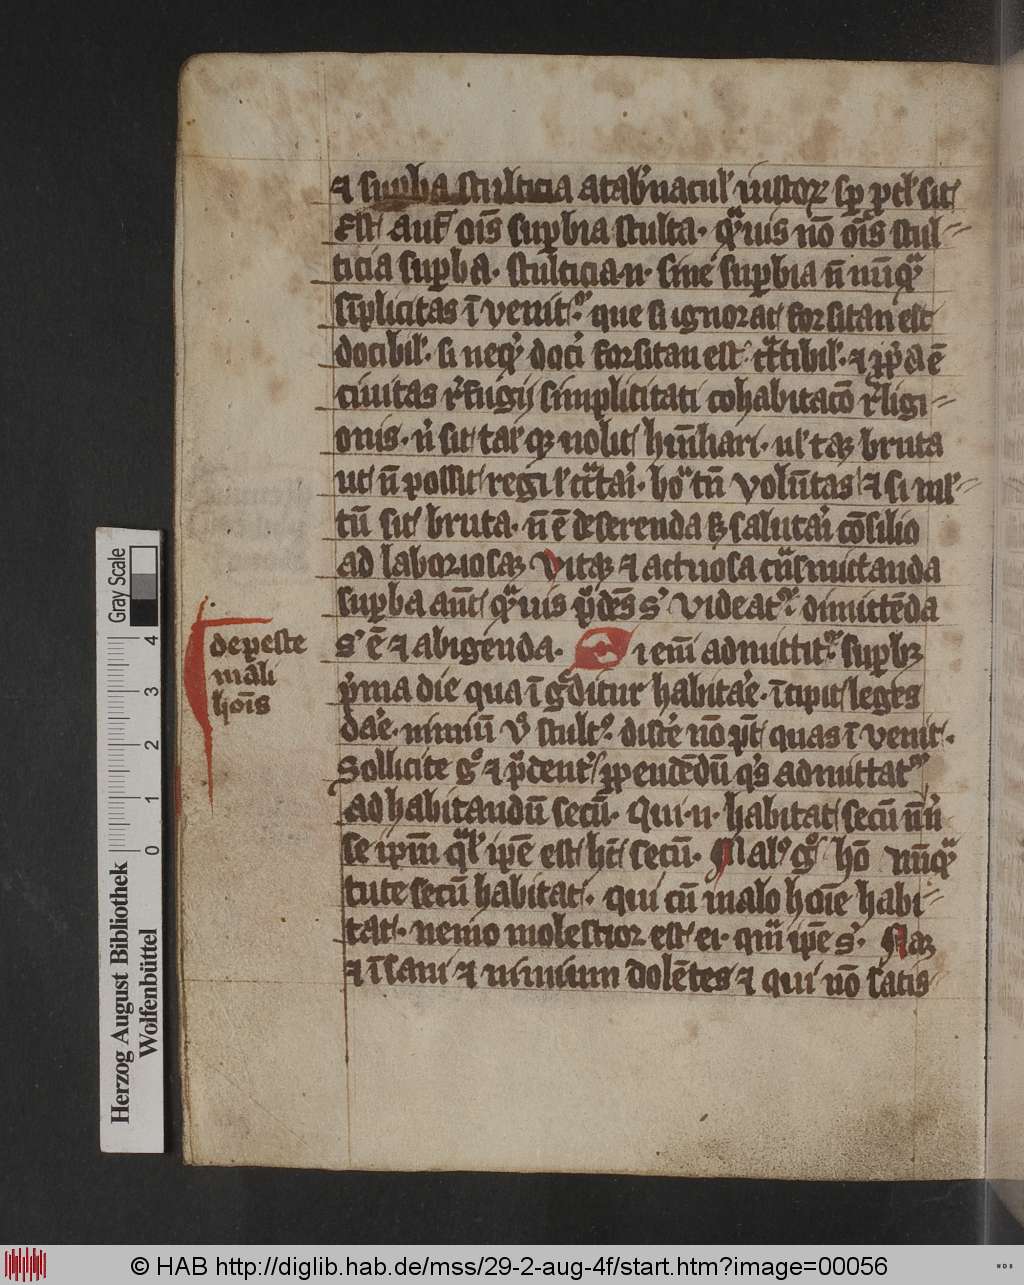 ⁊ supba stulticia a tab'nacul' iustoꝝ sp ꝓcl' sit
Est aut̄ oīs supbia stulta. qᵃuis nō oīs stul=
ticia supba. stulticia .n. sine supbia ñ nūqᵃ
sīplicitas īvenit᷑. que si ignorat forsitan est
docibil'. si neqꝫ doc'i forsitan est tᵃctibil'. ⁊ ē
civitas r'fugij simplicitati cohabitacō r'ligi=
onis. n' sit tal' qꝫ nolit hūiliari. ul' taꝫ bruta
ut ñ possit regi l' tᵃctari. boᵃ tn̄ volūtas ⁊ si ml'=
tū sit bruta. ñ ē deserenda sꝫ salutari cōsilio
ad laboriosaꝫ vitaꝫ ⁊ actuosa tᵃnsmittanda
supba aūt qᵃuis pᵃdēs s' videat᷑. dimittēda
s' ē ⁊ abigenda. Si eīm admittit᷑ supbꝫ
pⁱma die qua īgᵃditur habitar'e. īcipit leges
dar'e. nimiū v° stult⁹. discr'e nō pt̄ quas īvenit.
Sollicite g° ⁊ pᵃdent' ꝓpendēdū qⁱs admittat᷑
ad habitandū secū. Qui .n. habitat secū nⁱ
se ipm̄ qᵃl' ipē est hc̄t secū. Mal⁹ g° hō nūqᵃ
tute secū habitat. qui cū malo hoīe habi=
tat. nemo molestior est ei. qᵃ ipē s'. Naꝫ
⁊ īsani ⁊ nimium dolētes ⁊ qui nō satis
de peste
mali
hoīs
Gray Scale
4
3
2
1
0
Herzog August Bibliothek
Wolfenbüttel
© HAB http://diglib.hab.de/mss/29-2-aug-4f/start.htm?image=00056